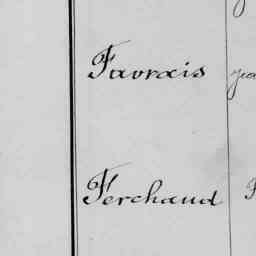 Favrais
Ferchaud